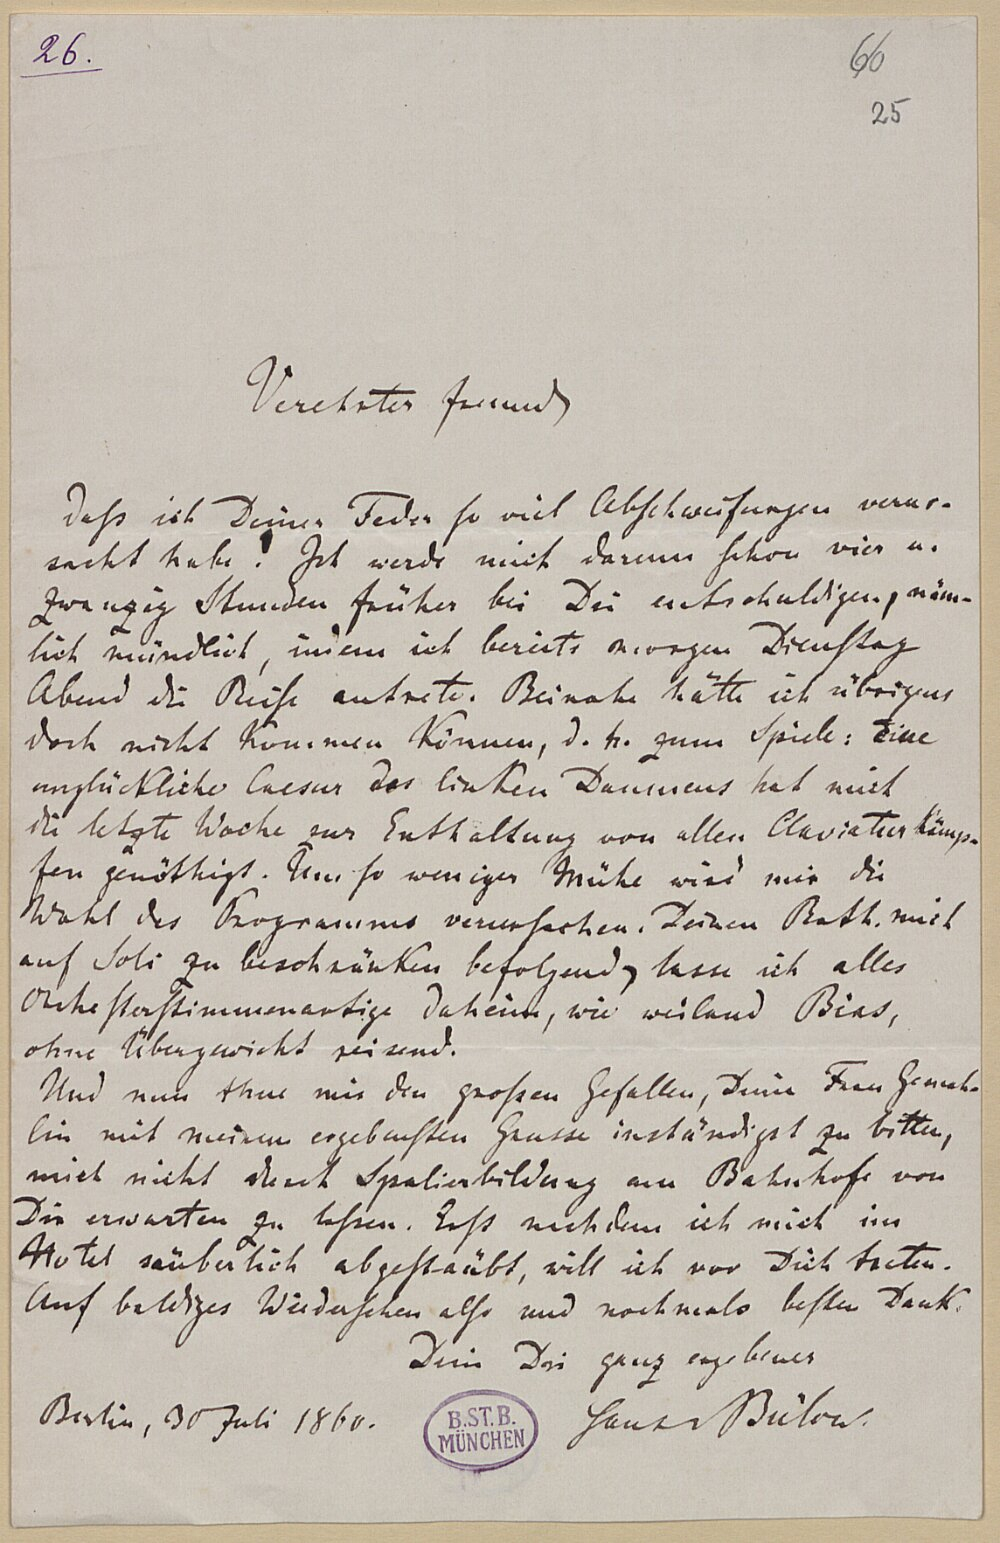 26.
60
25
Verehrter Freund
Daß ich Deiner Feder so viel Abschweifungen verur-
sacht habe! Ich werde mich darum schon vier u.
zwanzig Stunden früher bei Dir entschuldigen, näm-
lich mündlich, indem ich bereits morgen Dienstag
Abend die Reise antrete. Beinahe hätte ich übrigens
doch nicht kommen können, d. h. zum Spiele: Eine
unglückliche Caesur des linken Daumens hat mich
die letzte Woche zur Enthaltung von allen Claviaturkämp-
fen genöthigt. Um so weniger Mühe wird mir die
Wahl des Programms verursachen. Deinen Rath, mich
auf Soli zu beschränken befolgend, lasse ich alles
Orchesterstimmenartige daheim, wie weiland Bias,
ohne Übergewicht reisend.
Und nun thue mir den großen Gefallen, Deine Frau Gemah-
lin mit meinem ergebensten Grusse inständigst zu bitten,
mich nicht durch Spalierbildung am Bahnhofe von
Dir erwarten zu lassen. Erst nachdem ich mich im
Hotel säuberlich abgestäubt, will ich vor Dich treten.
Auf baldiges Wiedersehen also und nochmals besten Dank.
Dein Dir ganz ergebener
Berlin, 30 Juli 1860.
Hans v Bülow.
B.ST.B.
MÜNCHEN